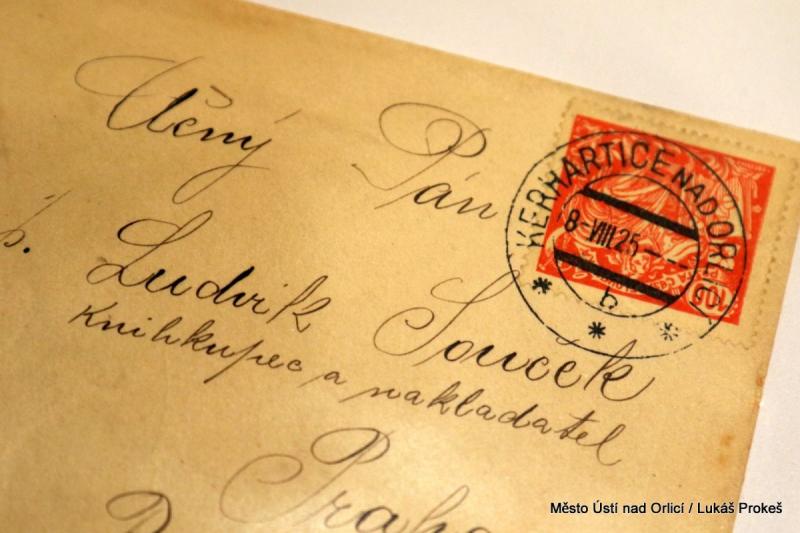 Včený Pán
b. Ludvik Souček
Knihkupec a nakladatel
Praha
KERHARTICE NAD ORLICÍ
8-VIII.25
b
Město Ústí nad Orlicí / Lukáš Prokeš